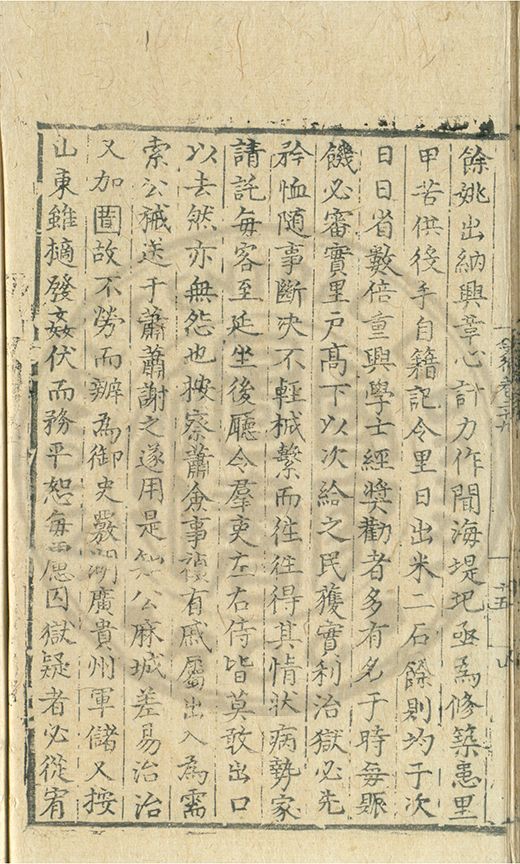 餘姚出納興革心計力作聞海堤圯亟爲修築患里
甲苦供役手自籍記令里日出米二石餘則均于次
日日省數倍重興學士經奬勸者多有名于時每賑
饑必審實里戸高下以次給之民獲實利治獄必先
矜恤隨事斷决不輕械繫而往往得其情狀病勢家
請託每客至延坐後廳令羣吏左右侍皆莫敢出口
以去然亦無怨也按察蕭僉事禎有戚屬出入為需
索公械送于蕭蕭謝之遂用是知公麻城差易治治
又加圕故不勞而辦為御史覈湖廣貴州軍儲又按
山東雖擿發姦伏而務平恕每慮囚獄疑者必從宥